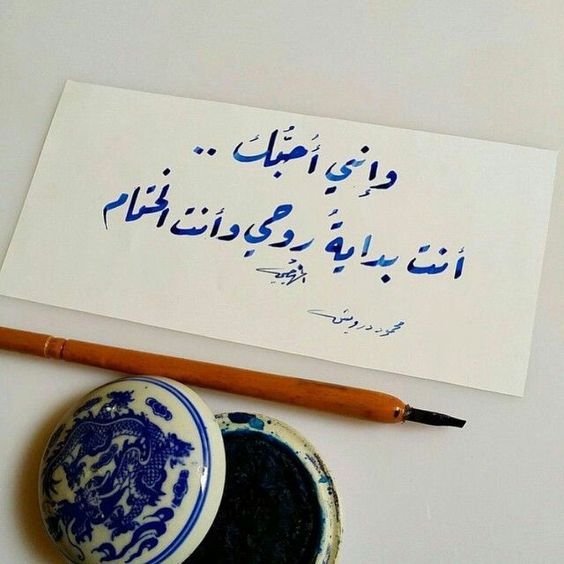 وإنني أُحبُّكَ ..
أنت بدايةُ روحي وأنت الختام
محمود درويش